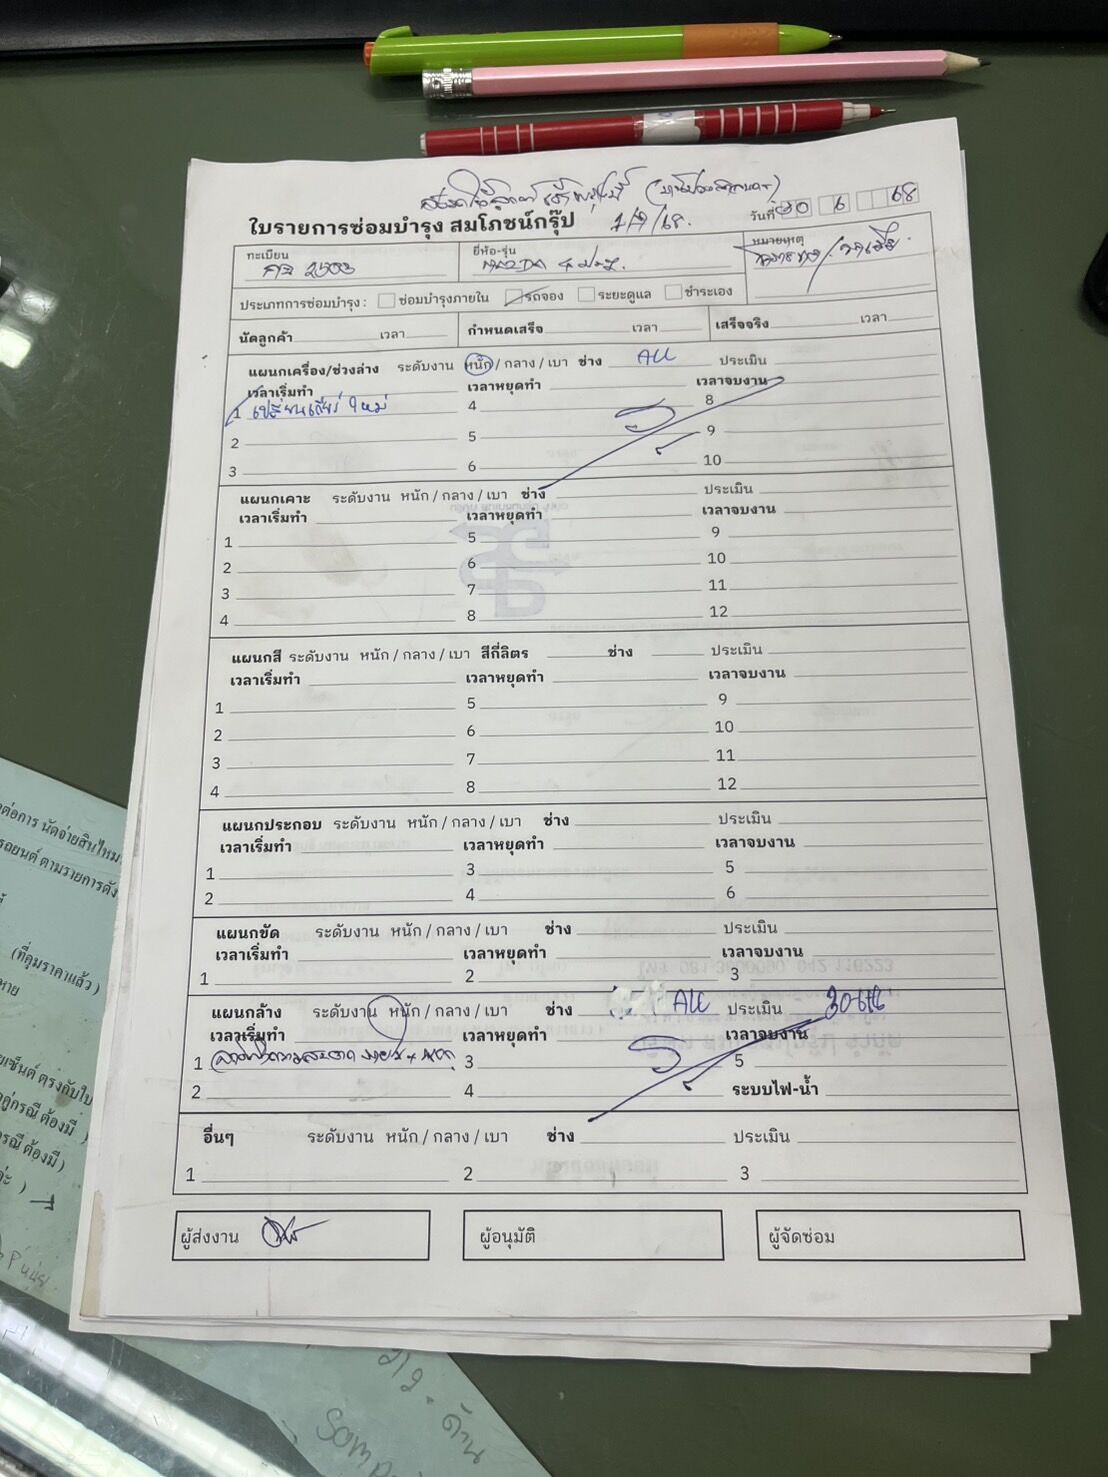 ใบรายการซ่อมบำรุง สมโภชน์กรุ๊ป 1/7/68.
วันที่ 30 6 68
ทะเบียน 2503
ยี่ห้อ-รุ่น MAZDA 4 ประตู
หมายเหตุ
ประเภทการซ่อมบำรุง : ซ่อมบำรุงภายใน รถจอง ระยะดูแล ชำระเอง
นัดลูกค้า เวลา กำหนดเสร็จ เวลา เสร็จจริง เวลา
แผนกเครื่อง/ช่วงล่าง ระดับงาน หนัก / กลาง / เบา ช่าง ALL ประเมิน
เวลาเริ่มทำ เวลาหยุดทำ เวลาจบงาน
1 เปลี่ยนเกียร์ใหม่ 4 8
2 5 9
3 6 10
แผนกเคาะ ระดับงาน หนัก / กลาง / เบา ช่าง ประเมิน
เวลาเริ่มทำ เวลาหยุดทำ เวลาจบงาน
1 5 9
2 6 10
3 7 11
4 8 12
แผนกสี ระดับงาน หนัก / กลาง / เบา สีกี่ลิตร ช่าง ประเมิน
เวลาเริ่มทำ เวลาหยุดทำ เวลาจบงาน
1 5 9
2 6 10
3 7 11
4 8 12
แผนกประกอบ ระดับงาน หนัก / กลาง / เบา ช่าง ประเมิน
เวลาเริ่มทำ เวลาหยุดทำ เวลาจบงาน
1 3 5
2 4 6
แผนกขัด ระดับงาน หนัก / กลาง / เบา ช่าง ประเมิน
เวลาเริ่มทำ เวลาหยุดทำ เวลาจบงาน
1 2 3
แผนกล้าง ระดับงาน หนัก / กลาง / เบา ช่าง ALL ประเมิน
เวลาเริ่มทำ เวลาหยุดทำ เวลาจบงาน
1 3 5
2 4 ระบบไฟ-น้ำ
อื่นๆ ระดับงาน หนัก / กลาง / เบา ช่าง ประเมิน
1 2 3
ผู้ส่งงาน ผู้อนุมัติ ผู้จัดซ่อม
(ที่คุมราคาแล้ว)